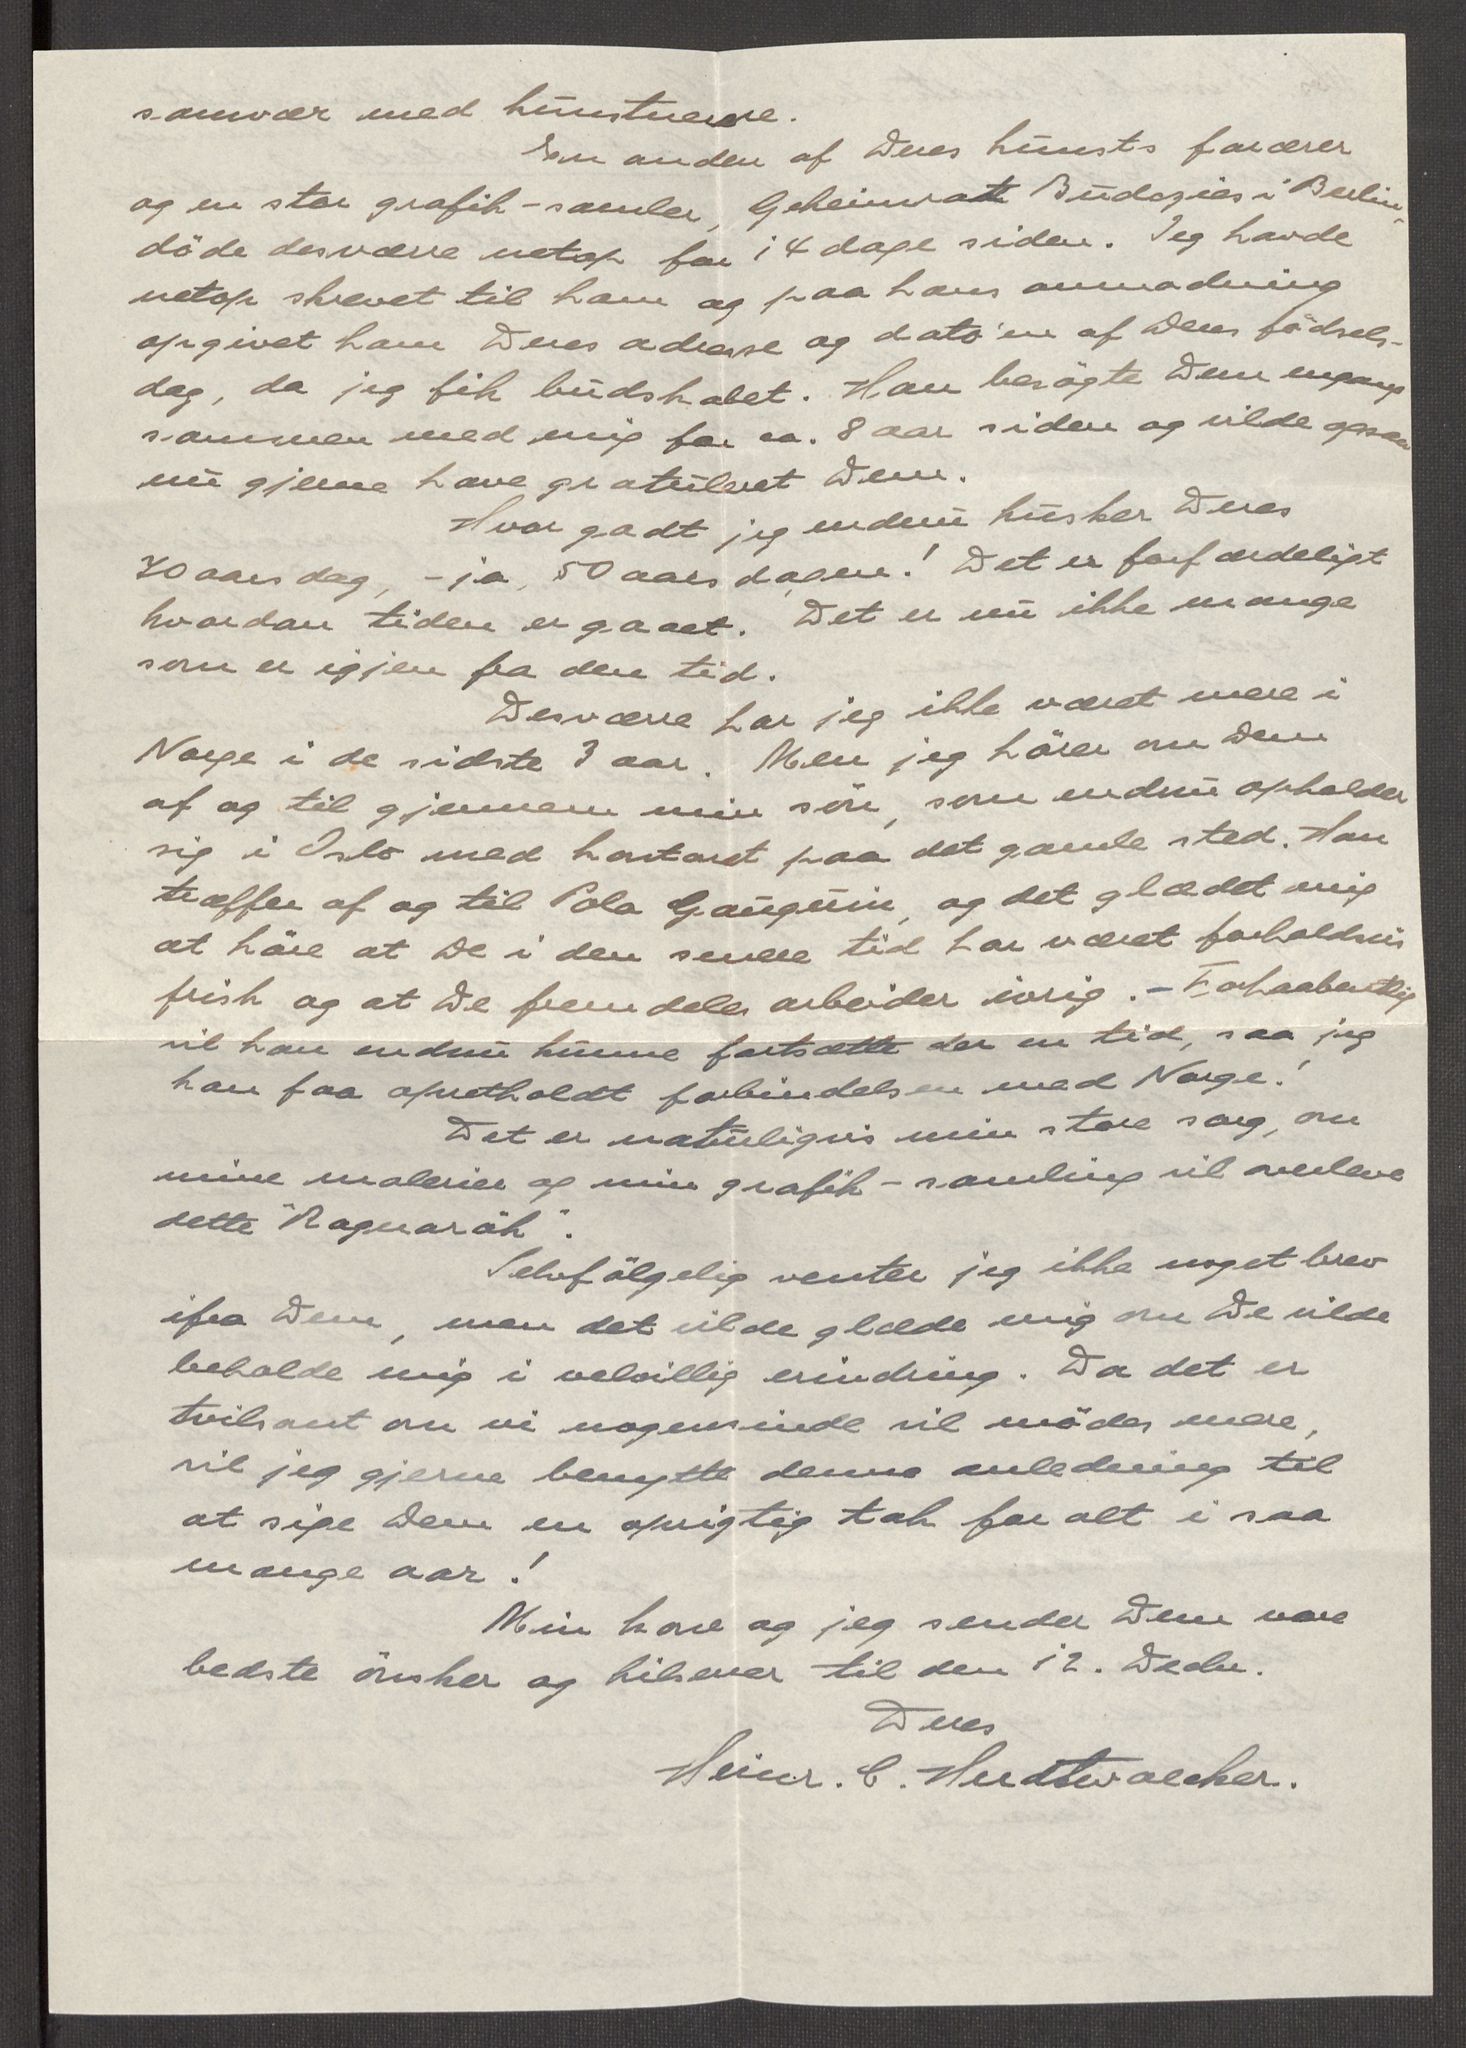 samvær med kunstnerne.
En anden af Deres kunsts forærer
og en stor grafik-samler, Geheimratt Budczies i Berlin,
döde desværre netop for 14 dage siden. Jeg havde
netop skrevet til ham og paa hans anmodning
opgivet ham Deres adresse og dato'en af Deres födsels-
dag, da jeg fik budskabet. Han besögte Dem engang
sammen med mig for ca. 8 aar siden og vilde ogsaa
nu gjerne have gratuleret Dem.
Hvor godt jeg endnu husker Deres
70 aarsdag, - ja, 50 aarsdagen! Det er forfærdeligt
hvordan tiden er gaaet. Det er nu ikke mange
som er igjen fra den tid.
Desværre har jeg ikke været mere i
Norge i de sidste 3 aar. Men jeg hörer om Dem
af og til gjennem min sön, som endnu opholder
sig i Oslo med kontoret paa det gamle sted. Han
træffer af og til Pola Gauguin, og det glædet mig
at höre at De i den senere tid har været forholdsvis
frisk og at De fremdeles arbeider ivrig. - Forhaabentlig
vil han endnu kunne fortsætte der en tid, saa jeg
kan faa opretholdt forbindelsen med Norge!
Det er naturligvis min store sorg, om
mine malerier og min grafik-samling vil overleve
dette "Ragnarök".
Selvfölgelig venter jeg ikke noget brev
ifra Dem, men det vilde glæde mig om De vilde
beholde mig i velvillig erindring. Da det er
tvilsomt om vi nogensinde vil mödes mere,
vil jeg gjerne benytte denne anledning til
at sige Dem en oprigtig tak for alt i saa
mange aar!
Min kone og jeg sender Dem vore
bedste önsker og hilsener til den 12. Decbr.
Deres
Heinr. C. Hudtwalcker.